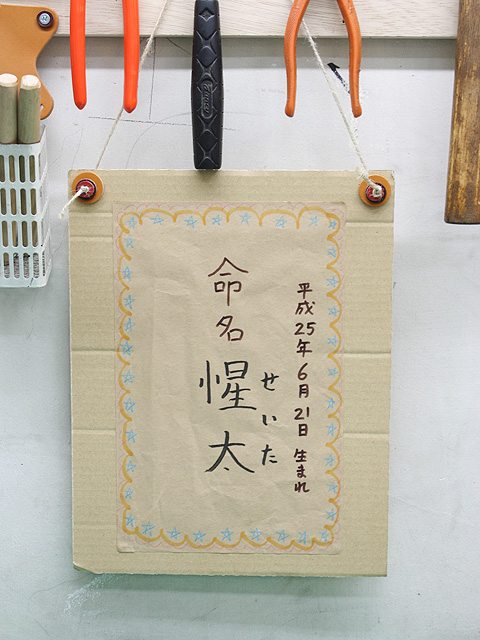 平成25年6月21日 生まれ
命名 惺太
せいた